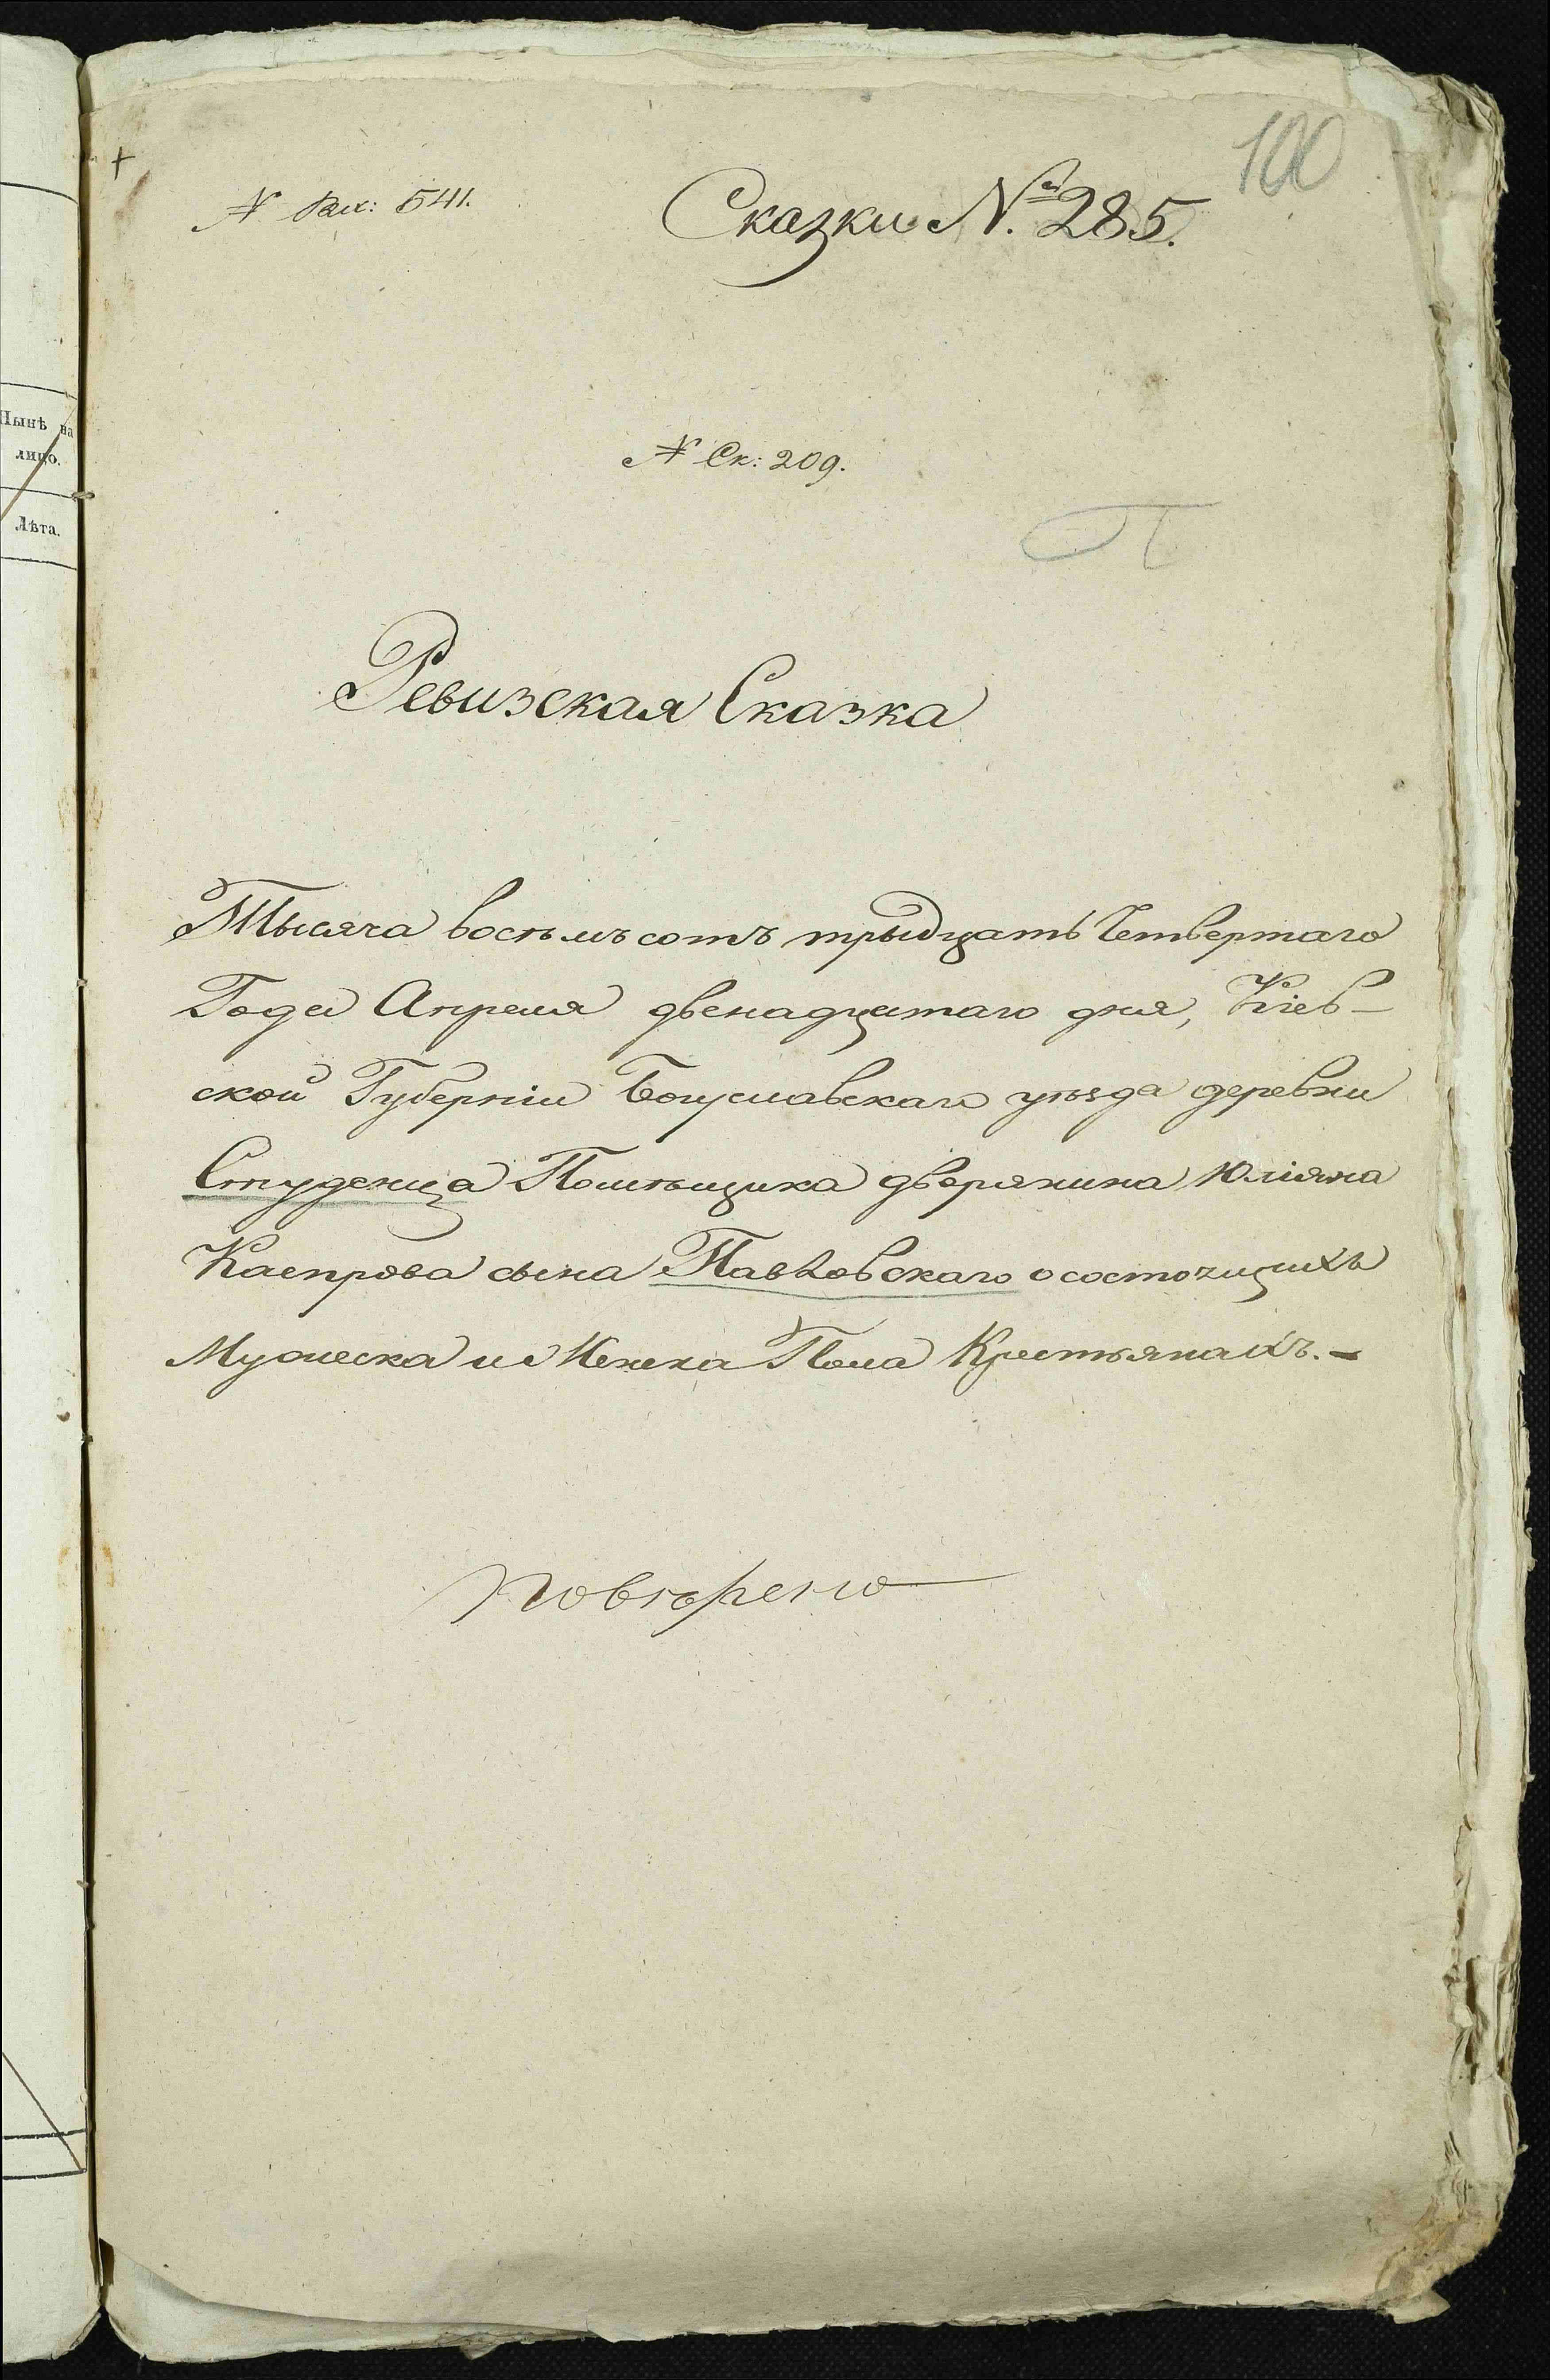 100
№ Вах: 541.
Сказки №й 285.
№ Ск: 209.
Ревизская Сказка
Тысяча восѣмъ сотъ трыдцать Четвертаго
Года Апреля двенадцатаго дня, Кіев-
ской Губерніи Богуславскаго уѣзда деревни
Студенца Помѣщика дворянина Юліяна
Каспрова сына Павковскаго о состоящихъ
Мужеска и Женска Пола Крестьянахъ.-
повѣрено
Нынѣ на
лицо.
Лѣта.